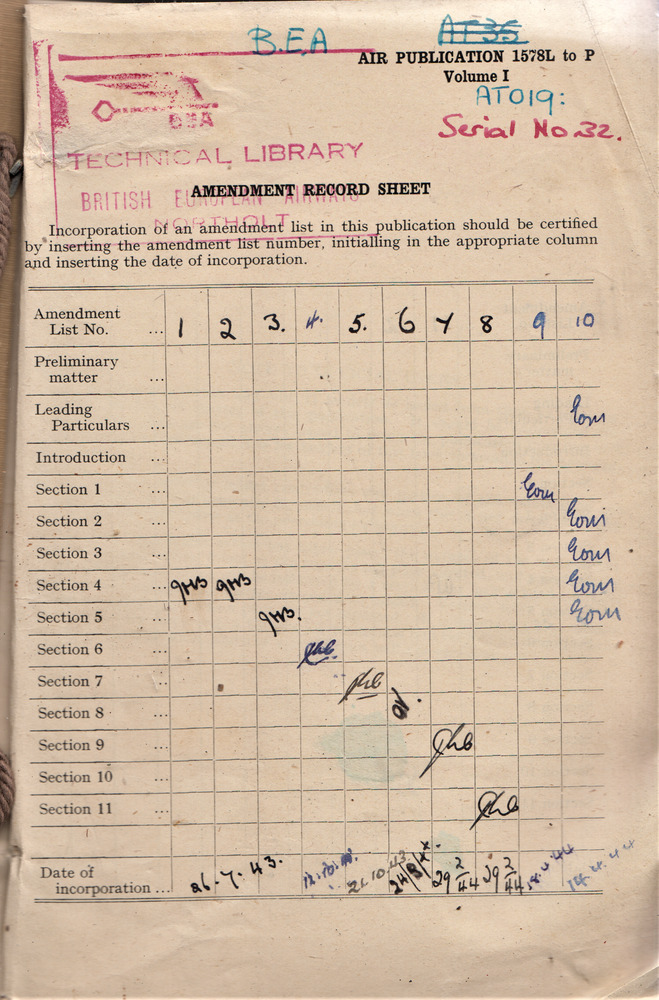 B.E.A
AT35
AIR PUBLICATION 1578L to P
Volume I
AT019:
Serial No. 32.
BEA
TECHNICAL LIBRARY
BRITISH EUROPEAN AIRWAYS
NORTHOLT
AMENDMENT RECORD SHEET
Incorporation of an amendment list in this publication should be certified
by inserting the amendment list number, initialling in the appropriate column
and inserting the date of incorporation.
Amendment
List No. ... 1 2 3. 4. 5. 6 7 8 9 10
Preliminary
matter ...
Leading
Particulars ...
Introduction ...
Section 1 ...
Section 2 ...
Section 3 ...
Section 4 ...
Section 5 ...
Section 6 ...
Section 7 ...
Section 8 ...
Section 9 ...
Section 10 ...
Section 11 ...
Date of
incorporation ... 26.7.43. 21.10.43. 29 2/44 29 2/44 14.4.44